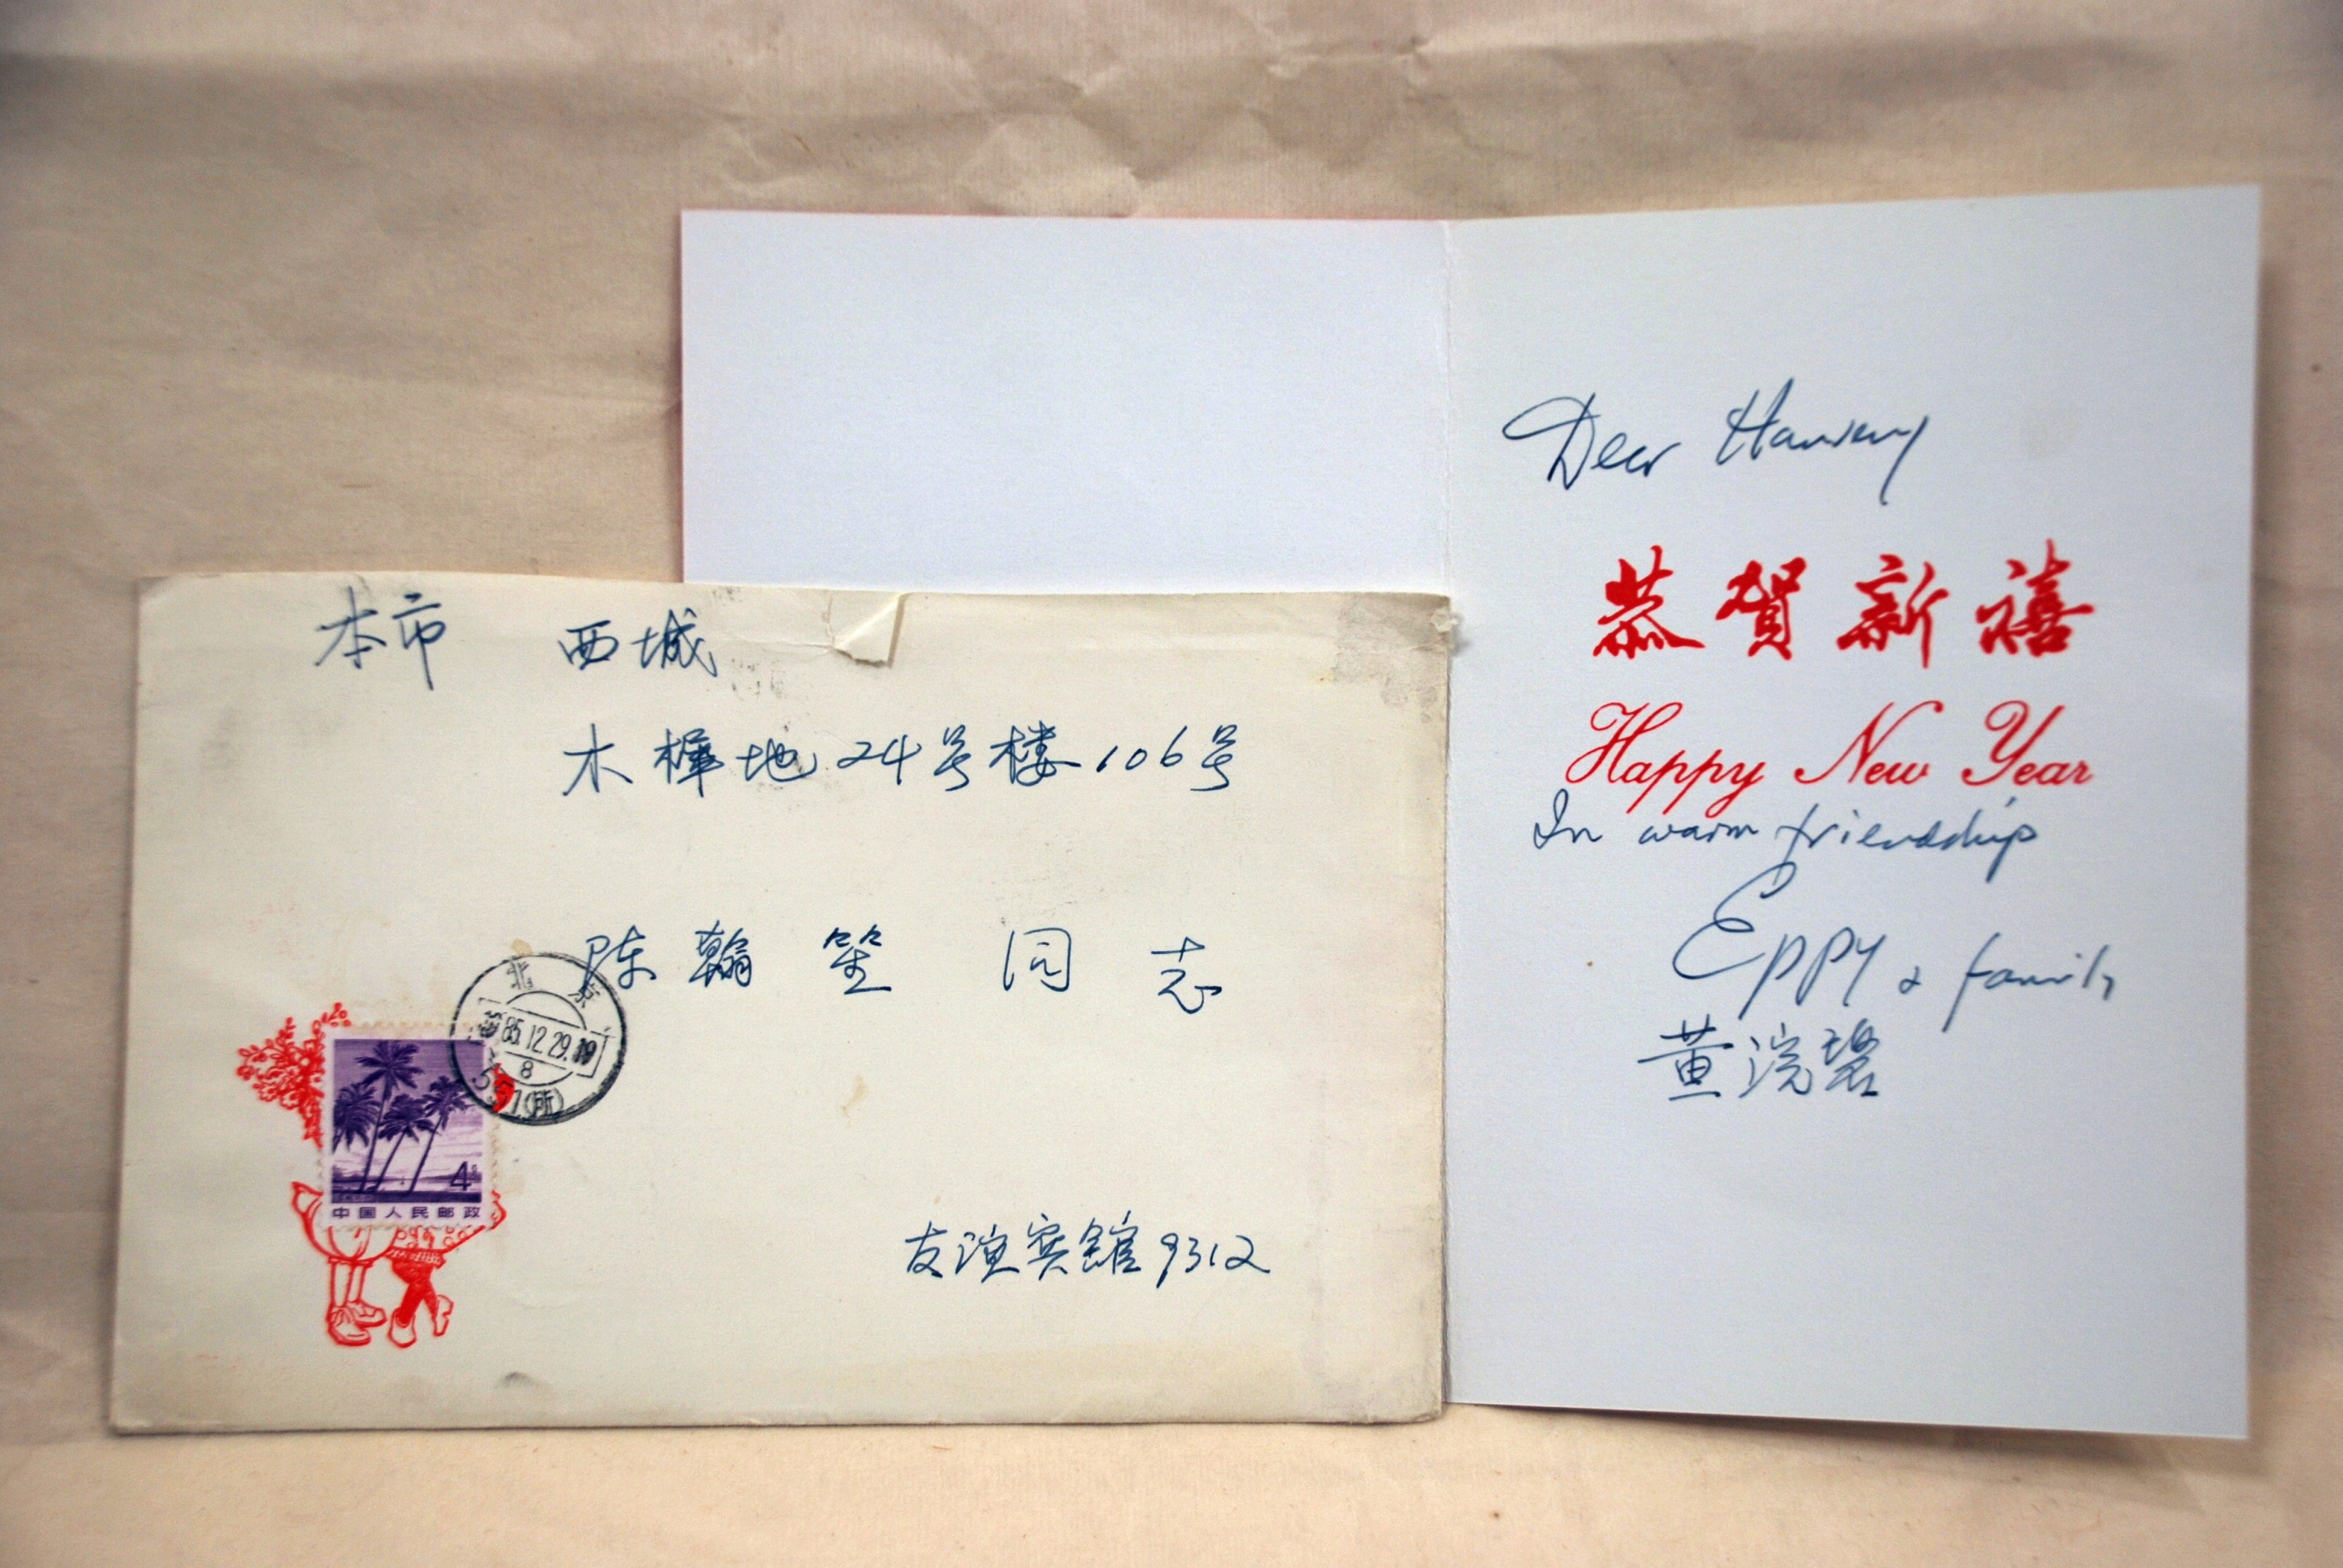 本市 西城
木樨地24号楼106号
陈翰笙 同志
北京
85.12.29.19
8
551(所)
4
中国人民邮政
友谊宾馆9312
Dear Hanseng
恭贺新禧
Happy New Year
In warm friendship
Eppy & family
黄浣碧